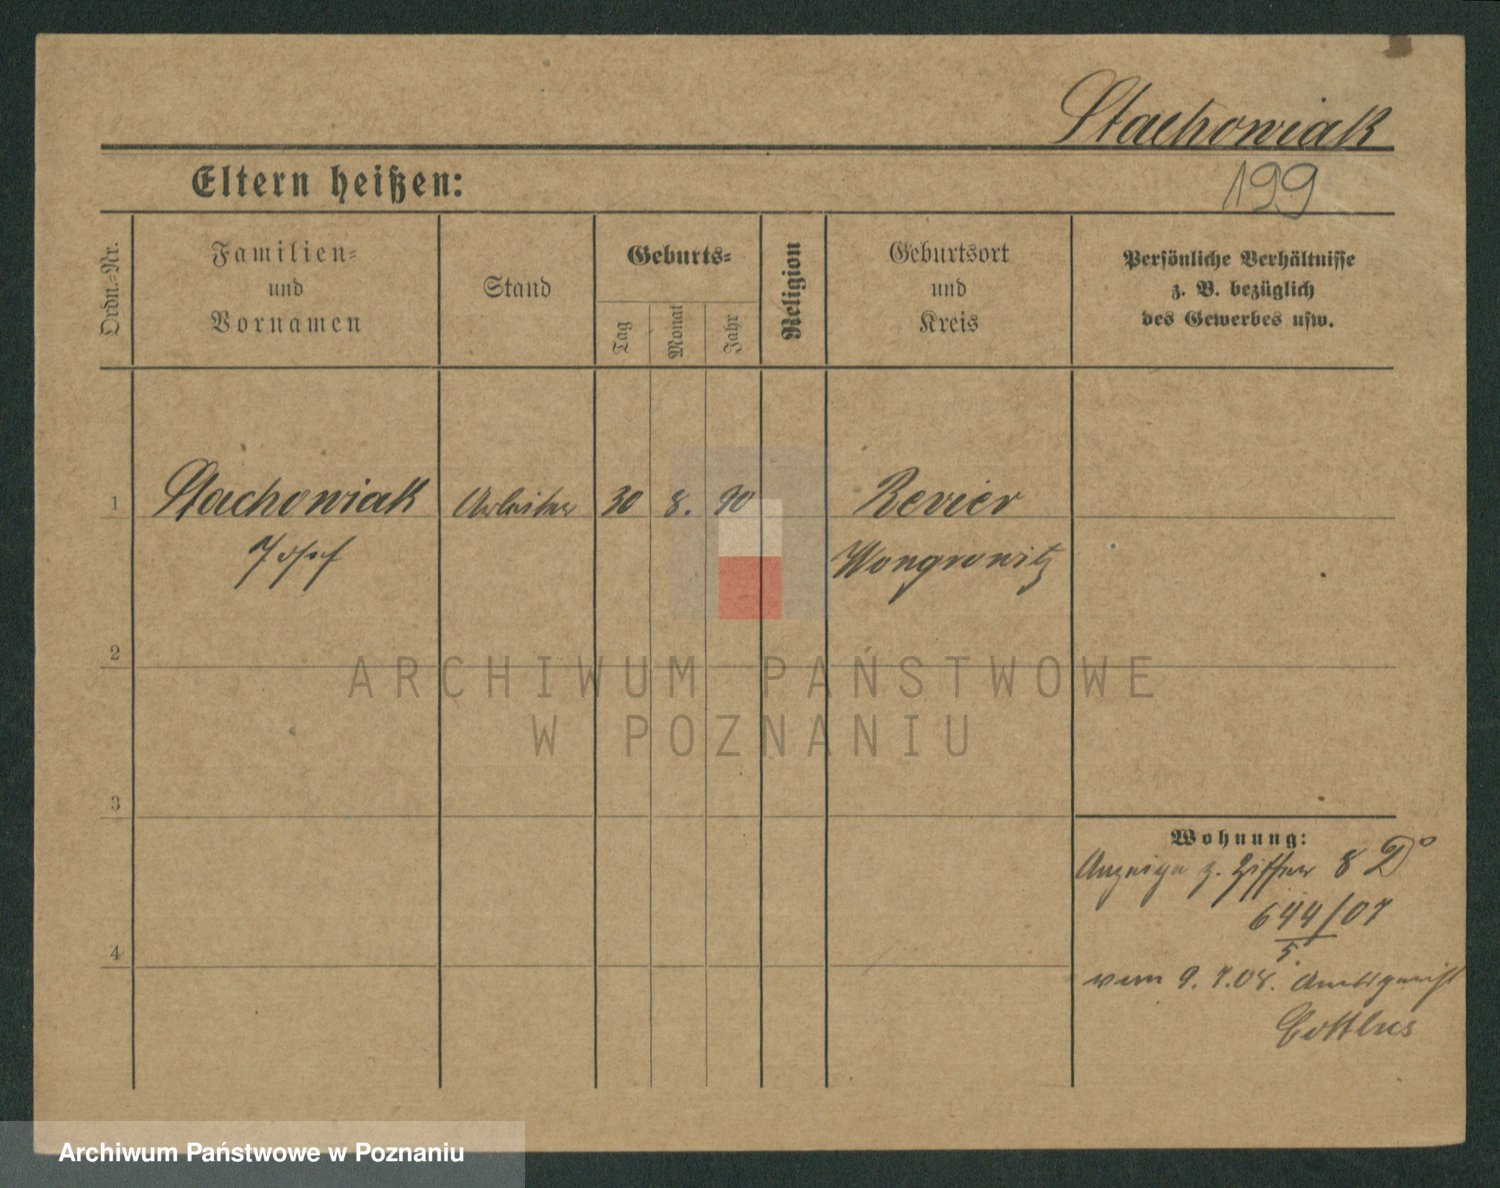 Stachowiak
Eltern heißen:
199
Ordn.=Nr.
Familien=
und
Vornamen
Stand
Geburts=
Tag
Monat
Jahr
Religion
Geburtsort
und
Kreis
Persönliche Verhältnisse
z. B. bezüglich
des Gewerbes usw.
1 Stachowiak Arbeiter 30 8. 90 Revier
Josef Wongrowitz
2
ARCHIWUM PAŃSTWOWE
W POZNANIU
3
Wohnung:
Anzeige z. Ziffer 8 D°
644/07
5.
4
vom 9.7.08. Amtsgericht
Cottbus
Archiwum Państwowe w Poznaniu